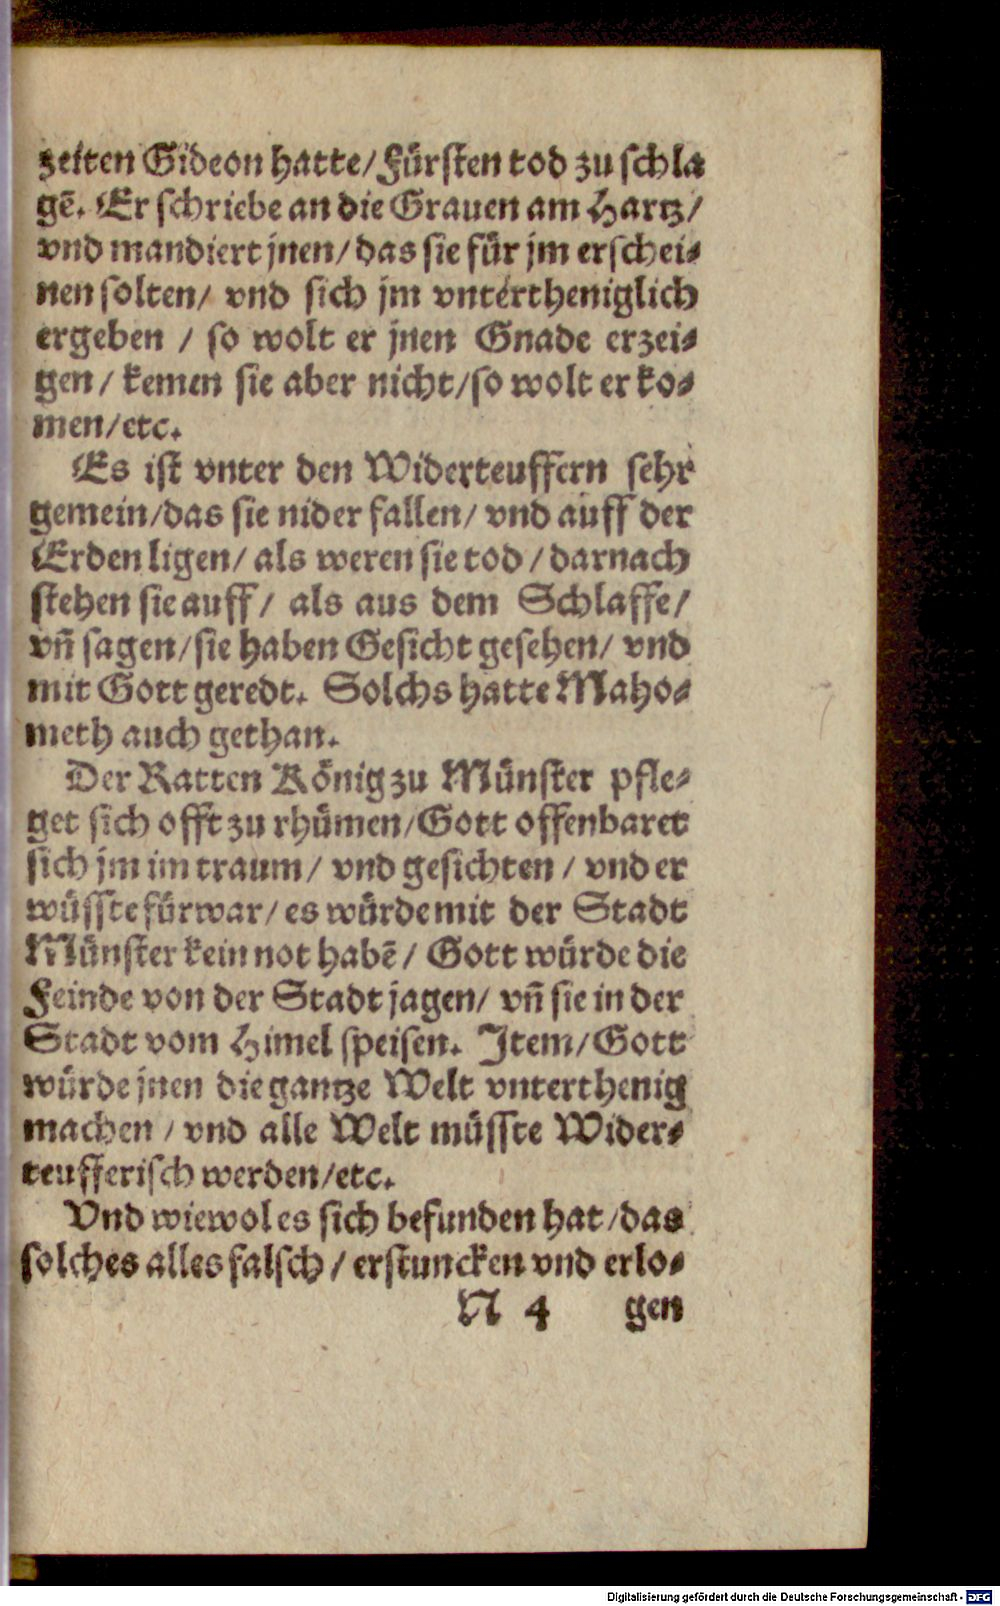 zeiten Gideon hatte/Fürsten tod zu schla
gẽ. Er schriebe an die Grauen am Hartz/
vnd mandiert jnen/das sie für jm erschei-
nen solten/ vnd sich jm vntertheniglich
ergeben / so wolt er jnen Gnade erzei-
gen/ kemen sie aber nicht/so wolt er ko-
men/etc.
Es ist vnter den Widerteuffern sehr
gemein/das sie nider fallen/ vnd auff der
Erden ligen/ als weren sie tod/ darnach
stehen sie auff/ als aus dem Schlaffe/
vñ sagen/sie haben Gesicht gesehen/ vnd
mit Gott geredt. Solchs hatte Maho-
meth auch gethan.
Der Ratten König zu Münster pfle-
get sich offt zu rhümen/Gott offenbaret
sich jm im traum/ vnd gesichten / vnd er
wüsste fürwar/ es würde mit der Stadt
Münster kein not habẽ/ Gott würde die
Feinde von der Stadt jagen/ vñ sie in der
Stadt vom Himel speisen. Item/Gott
würde jnen die gantze Welt vnterthenig
machen / vnd alle Welt müsste Wider-
teufferisch werden/etc.
Vnd wiewol es sich befunden hat/das
solches alles falsch / erstuncken vnd erlo-
N 4 gen
Digitalisierung gefördert durch die Deutsche Forschungsgemeinschaft - DFG